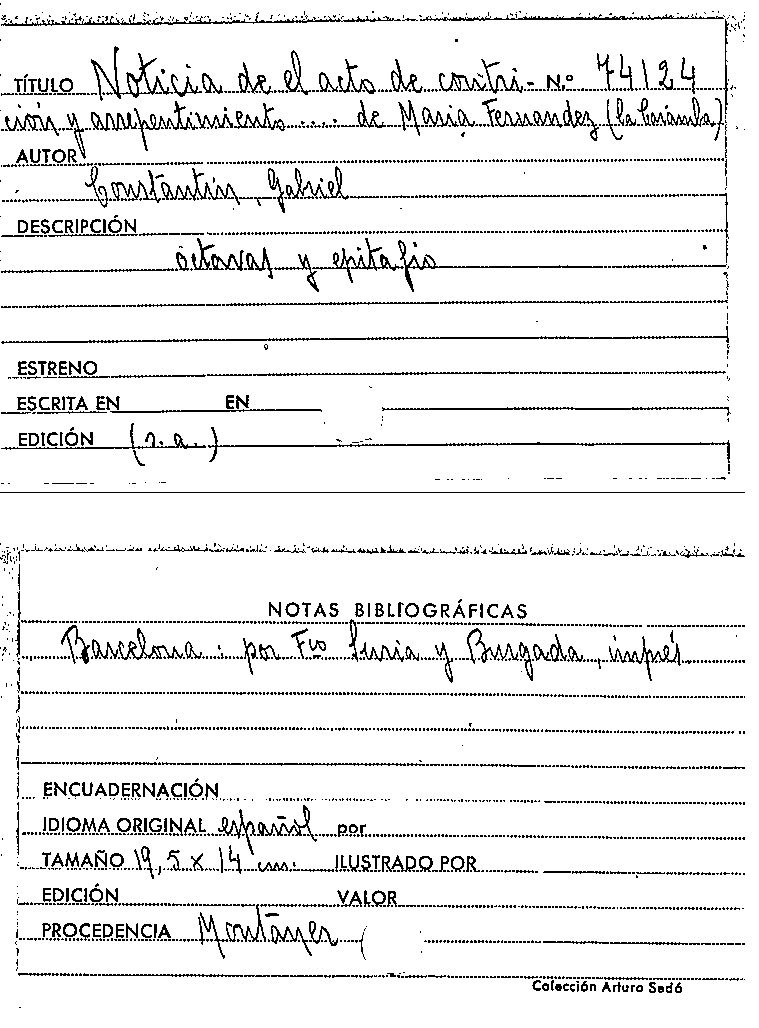 TÍTULO Noticia de el acto de contri- N.º 74124
ción y arrepentimiento .... de Maria Fernandez (la Caramba)
AUTOR
Constantín, Gabriel
DESCRIPCIÓN
octavas y epitafio
ESTRENO
ESCRITA EN EN
EDICIÓN (s.a.)
NOTAS BIBLIOGRÁFICAS
Barcelona : por Fco Suria y Burgada, impres.
ENCUADERNACIÓN
IDIOMA ORIGINAL español por
TAMAÑO 19,5 x 14 cm. ILUSTRADO POR
EDICIÓN VALOR
PROCEDENCIA Montaner
Colección Arturo Sedó